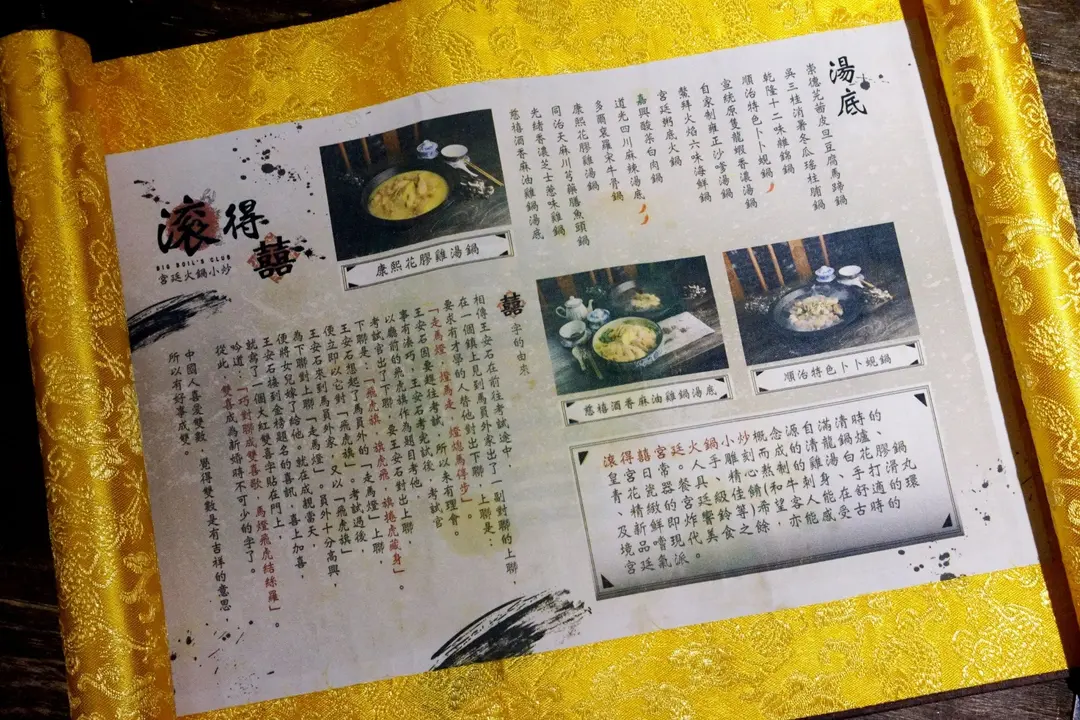 湯底
崇德芫茜皮旦豆腐馬蹄鍋
吳三桂消暑冬瓜瑤柱脯鍋
乾隆十二味雞錦鍋
順治特色卜卜蜆鍋
宣統原隻龍蝦香濃湯鍋
自家制雍正沙嗲湯鍋
鰲拜火焰六味海鮮鍋
宮廷粥底火鍋
嘉興酸菜白肉鍋
道光四川麻辣湯底
多爾袞蘿宋牛骨鍋
康熙花膠雞湯鍋
同治天麻川芎藥膳魚頭鍋
光緒香濃芝士蔥味雞鍋
慈禧酒香麻油雞鍋湯底
滾得囍
BIG BOIL'S CLUB
宮廷火鍋小炒
康熙花膠雞湯鍋
慈禧酒香麻油雞鍋湯底
順治特色卜卜蜆鍋
滾得囍宮廷火鍋小炒概念源自滿清時的
皇宮日常。人手雕刻而成的清龍鍋爐、
青花瓷器餐具、精心熬制的雞湯白花膠鍋
及精緻的宮廷級佳餚(和牛刺身、手打滑丸
新鮮即炸響鈴等)希望客人能在舒適的環
境品嚐現代美食之餘，亦能感受古時的
宮廷氣派。
囍字的由來
相傳王安石在前往考試途中，
在一個鎮上見到馬員外家出了一副對聯的上聯，
要求有才學的人替他對出下聯，上聯是：
「走馬燈，燈馬走，燈熄馬停步」。
王安石因要趕往考試，所以未有理會。
事有湊巧，王安石考完試後，考試官
以廳前的飛虎旗作為題目考他，
考試官出了下聯，要王安石對出上聯，
下聯是：「飛虎旗，旗虎飛，旗捲虎藏身」。
王安石想起了馬員外的「走馬燈」上聯，
便立即以它對「飛虎旗」。考試過後，
王安石來到馬員外家，又以「飛虎旗」
為下聯對上聯「走馬燈」，員外十分高興，
便將女兒嫁了給他。就在成親當天，
王安石接到金榜題名的喜訊，喜上加喜，
就寫了一個大紅雙喜字貼在門上，
吟道：「巧對聯成雙喜歌，馬燈飛虎結絲羅」。
從此，雙喜成為新婚時不可少的字了。
中國人喜愛雙數，覺得雙數是有吉祥的意思，
所以有好事成雙。